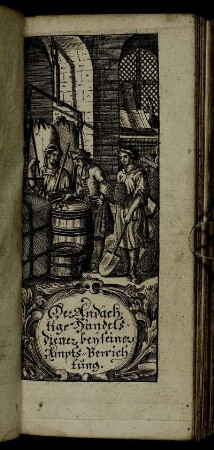 Der Andäch,
tige Handels-
diener, bey seiner
Ampts-Verrich
tung.